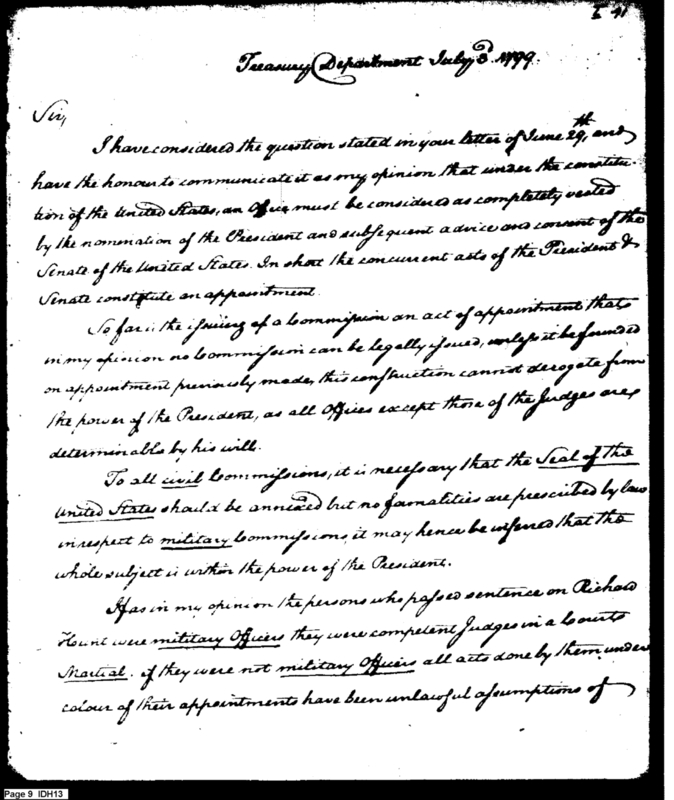 I 41
Treasury Department July 3d 1799.
Sir,
I have considered the question stated in your letter of June 29th, and
have the honour to communicate it as my opinion that under the constitu-
tion of the United States, an Office must be considered as completely vested
by the nomination of the President and subsequent advice and consent of the
Senate of the United States. In short the concurrent acts of the President &
Senate constitute an appointment.
So far is the issuing of a Commission an act of appointment that
in my opinion no Commission can be legally issued, unless it be founded
on appointment previously made, this construction cannot derogate from
the power of the President, as all Offices except those of the Judges are
determinable by his will.
To all civil Commissions, it is necessary that the Seal of the
United States should be annexed but no formalities are prescribed by law
in respect to military Commissions, it may hence be inferred that the
whole subject is within the power of the President.
If as in my opinion the persons who passed sentence on Richard
Hunt were military Officers they were competent Judges in a Court
Martial. if they were not military Officers all acts done by them under
colour of their appointments have been unlawful assumptions of
Page 9 IDH13